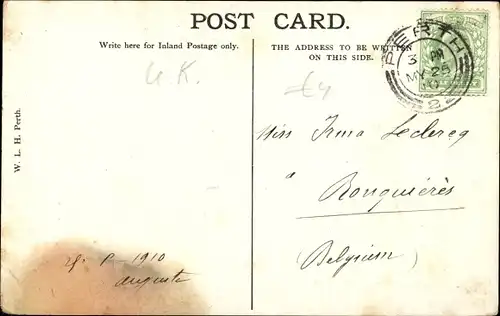 POST CARD.
Write here for Inland Postage only.
THE ADDRESS TO BE WRITTEN
ON THIS SIDE.
PERTH
3 PM
MY 25
10
2
U.K.
£4
Miss Irma Leclercq
à
Ronquières
(Belgium)
W. L. H. Perth.
1910
Auguste